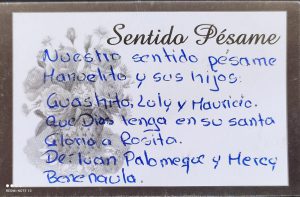 Sentido Pésame
Nuestro sentido pésame
Manuelito y sus hijos:
Guashito, Luly y Mauricio.
Que Dios tenga en su santa
Gloria a Rosita.
De: Juan Palomeque y Mercy
Benenaula.